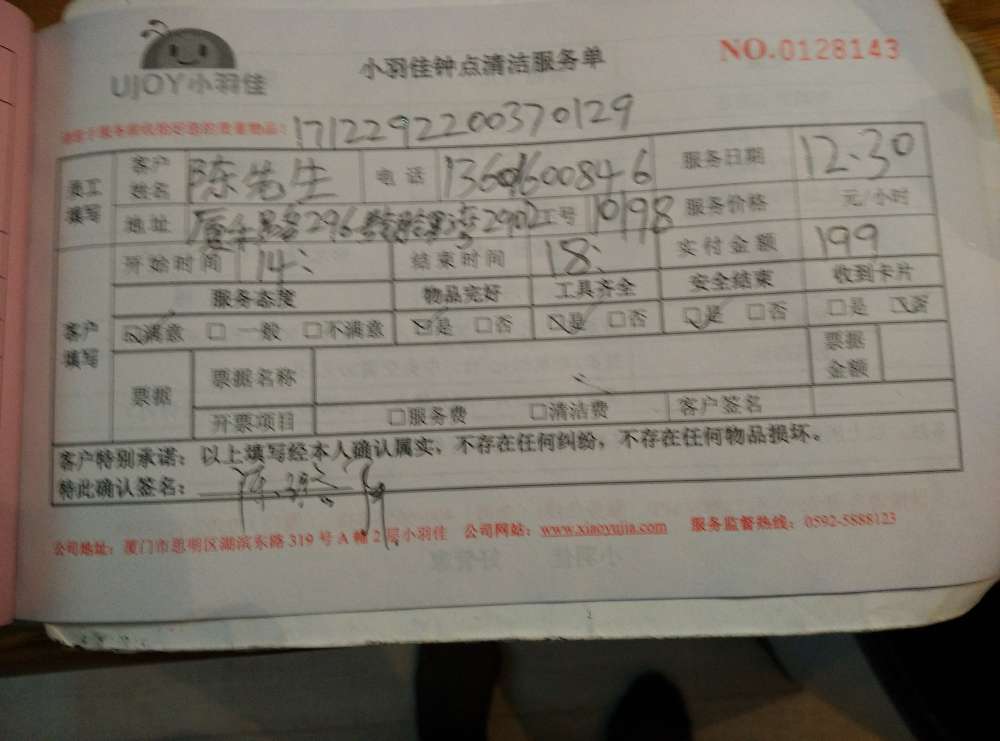 UJOY小羽佳
小羽佳钟点清洁服务单
NO.0128143
1712292200370129
员工填写 客户姓名 陈先生 电话 13601600846 服务日期 12.30
地址 296 2902 工号 10198 服务价格 元/小时
开始时间 14: 结束时间 18: 实付金额 199
客户填写 服务态度 物品完好 工具齐全 安全结束 收到卡片
☑满意 □一般 □不满意 ☑是 □否 ☑是 □否 ☑是 □否 □是 ☑否
票据 票据名称 票据金额
开票项目 □服务费 □清洁费 客户签名
客户特别承诺：以上填写经本人确认属实，不存在任何纠纷，不存在任何物品损坏。
特此确认签名：
公司地址：厦门市思明区湖滨东路319号A幢2层小羽佳 公司网站：www.xiaoyujia.com 服务监督热线：0592-5888123